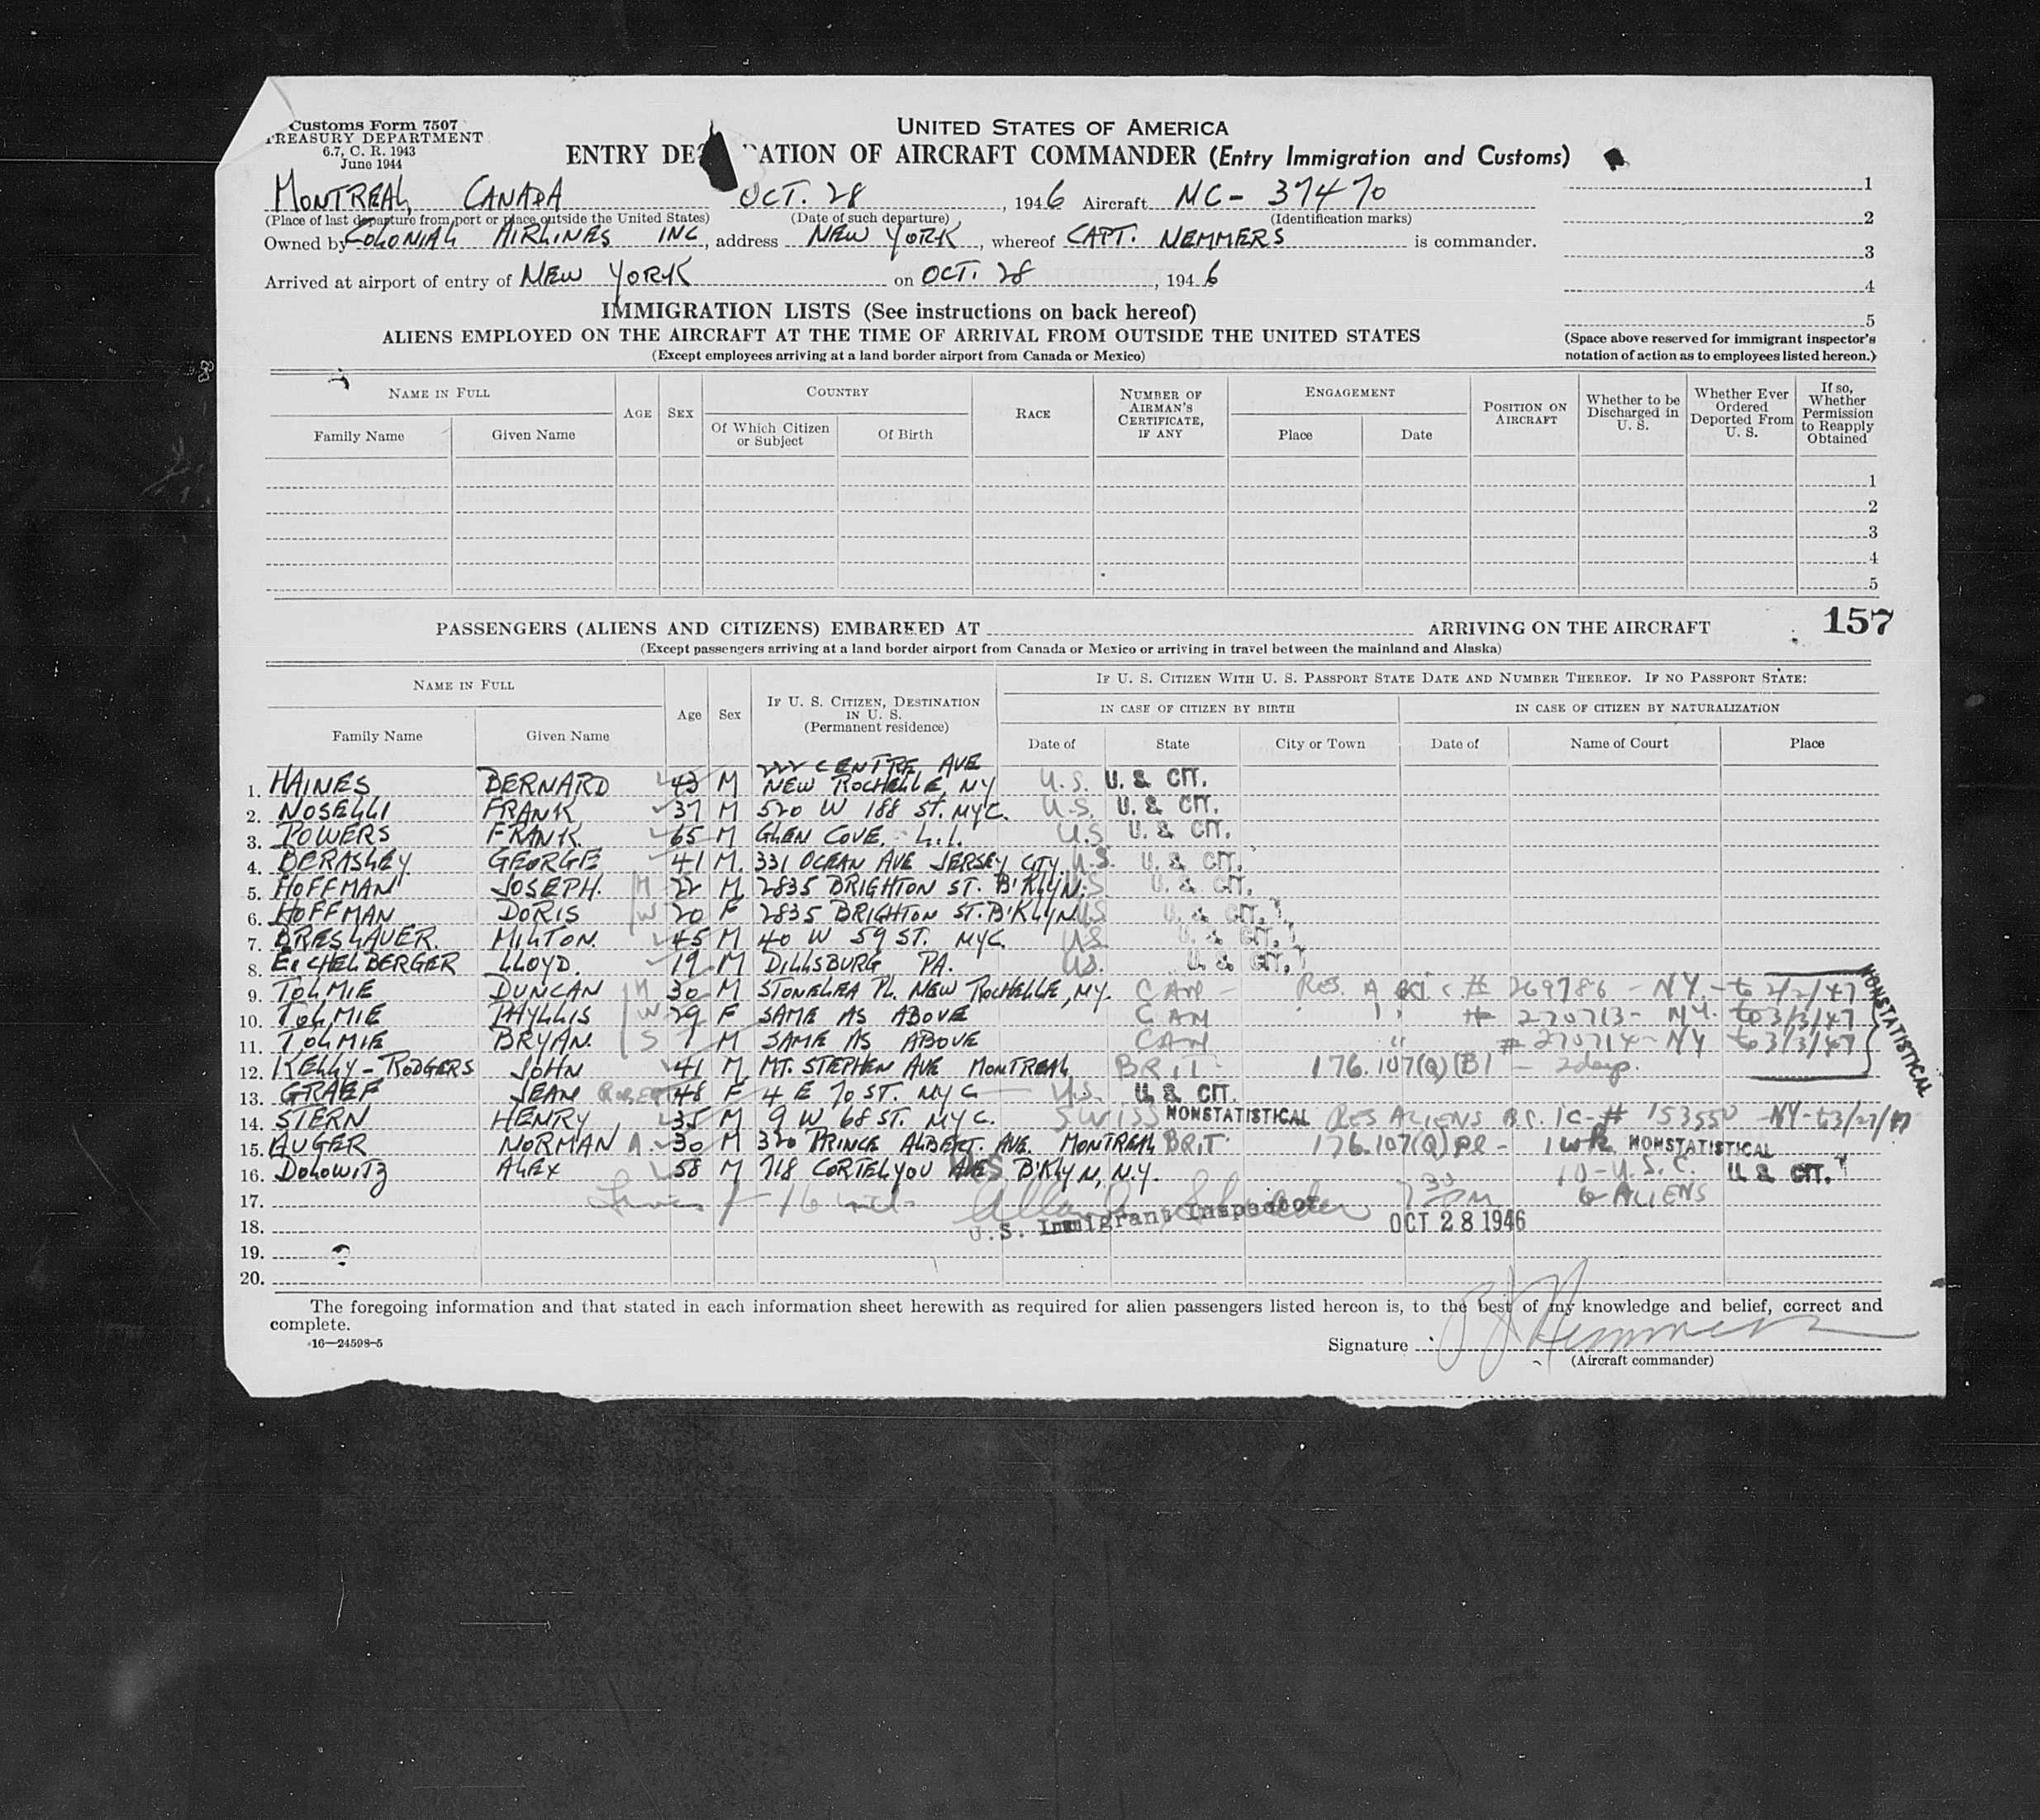 Customs Form 7507
TREASURY DEPARTMENT
6.7, C. R. 1943
June 1944
UNITED STATES OF AMERICA
ENTRY DE ATION OF AIRCRAFT COMMANDER (Entry Immigration and Customs)
MONTREAL, CANADA OCT. 28, 1946 Aircraft NC- 37470
(Place of last departure from port or place outside the United States) (Date of such departure) (Identification marks)
Owned by COLONIAL AIRLINES INC, address NEW YORK, whereof CAPT. NEMMERS is commander.
Arrived at airport of entry of NEW YORK on OCT. 28, 1946
1
2
3
4
5
(Space above reserved for immigrant inspector's
notation of action as to employees listed hereon.)
IMMIGRATION LISTS (See instructions on back hereof)
ALIENS EMPLOYED ON THE AIRCRAFT AT THE TIME OF ARRIVAL FROM OUTSIDE THE UNITED STATES
(Except employees arriving at a land border airport from Canada or Mexico)
NAME IN FULL AGE SEX COUNTRY RACE NUMBER OF AIRMAN'S CERTIFICATE, IF ANY ENGAGEMENT POSITION ON AIRCRAFT Whether to be Discharged in U. S. Whether Ever Ordered Deported From U. S. If so, Whether Permission to Reapply Obtained
Family Name Given Name Of Which Citizen or Subject Of Birth Place Date
1
2
3
4
5
157
PASSENGERS (ALIENS AND CITIZENS) EMBARKED AT ARRIVING ON THE AIRCRAFT
(Except passengers arriving at a land border airport from Canada or Mexico or arriving in travel between the mainland and Alaska)
NAME IN FULL Age Sex IF U. S. CITIZEN, DESTINATION IN U. S. (Permanent residence) IF U. S. CITIZEN WITH U. S. PASSPORT STATE DATE AND NUMBER THEREOF. IF NO PASSPORT STATE:
IN CASE OF CITIZEN BY BIRTH IN CASE OF CITIZEN BY NATURALIZATION
Family Name Given Name Date of State City or Town Date of Name of Court Place
222 CENTRE AVE
1. HAINES BERNARD 43 M NEW ROCHELLE, NY U.S. U. S. CIT.
2. NOSELLI FRANK 37 M 520 W 188 ST. NYC. U.S. U. S. CIT.
3. POWERS FRANK. 65 M GLEN COVE. L.I. U.S U. S. CIT.
4. BERASLEY GEORGE 41 M. 331 OCEAN AVE JERSEY CITY. U.S. U. S. CIT.
5. HOFFMAN JOSEPH. H 22 M 2835 BRIGHTON ST. B'KLYN. US U. S. CIT.
6. HOFFMAN DORIS W 20 F 2835 BRIGHTON ST. B'KLYN US U. S. CIT.
7. BRESLAUER. MILTON. 45 M 40 W 59 ST. NYC. US U. S. CIT.
8. EICHELBERGER LLOYD. 19 M DILLSBURG PA. US. U. S. CIT.
9. TOLMIE DUNCAN H 30 M STONELEA PL. NEW ROCHELLE, NY. CAN - RES. A # 269786 - NY. - to 2/2/47
10. TOLMIE PHYLLIS W 29 F SAME AS ABOVE CAN " # 270713 - NY. to 3/3/47
11. TOLMIE BRYAN. S 7 M SAME AS ABOVE CAN " # 270714 - NY to 3/3/47
NONSTATISTICAL
12. KELLY - RODGERS JOHN 41 M MT. STEPHEN AVE MONTREAL BRIT. 176.107(Q)(B) - 2 days.
13. GRAEF JEAN 48 F 4 E 70 ST. NYC U.S. U. S. CIT.
14. STERN HENRY 35 M 9 W 68 ST. NYC. SWISS NONSTATISTICAL RES ALIENS B.C. IC - # 153550 - NY - to 3/27/47
15. AUGER NORMAN A. 30 M 320 PRINCE ALBERT. AVE. MONTREAL BRIT. 176.107(Q) - 1 wk NONSTATISTICAL
16. DOLOWITZ ALEX 58 M 718 CORTELYOU B'KLYN, N.Y. 10 - U.S.C. U. S. CIT.
17. 16 7 30 PM 6 ALIENS
18. U.S. Immigrant Inspector OCT 28 1946
19.
20.
The foregoing information and that stated in each information sheet herewith as required for alien passengers listed hereon is, to the best of my knowledge and belief, correct and
complete.
16—24598-5
Signature Nemmers
(Aircraft commander)